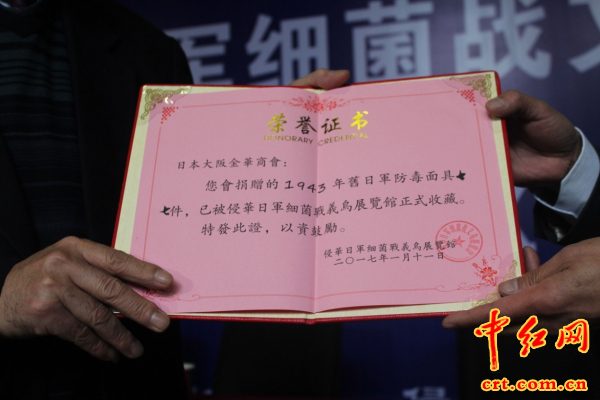 军细菌战文
荣誉证书
HONORARY CREDENTIAL
日本大阪金華商會：
您會捐贈的1943年舊日軍防毒面具七
七件，已被侵華日軍細菌戰義烏展覽館正式收藏。
特發此證，以資鼓勵。
侵華日軍細菌戰義烏展覽館
二〇一七年一月十一日
中红网
crt.com.cn